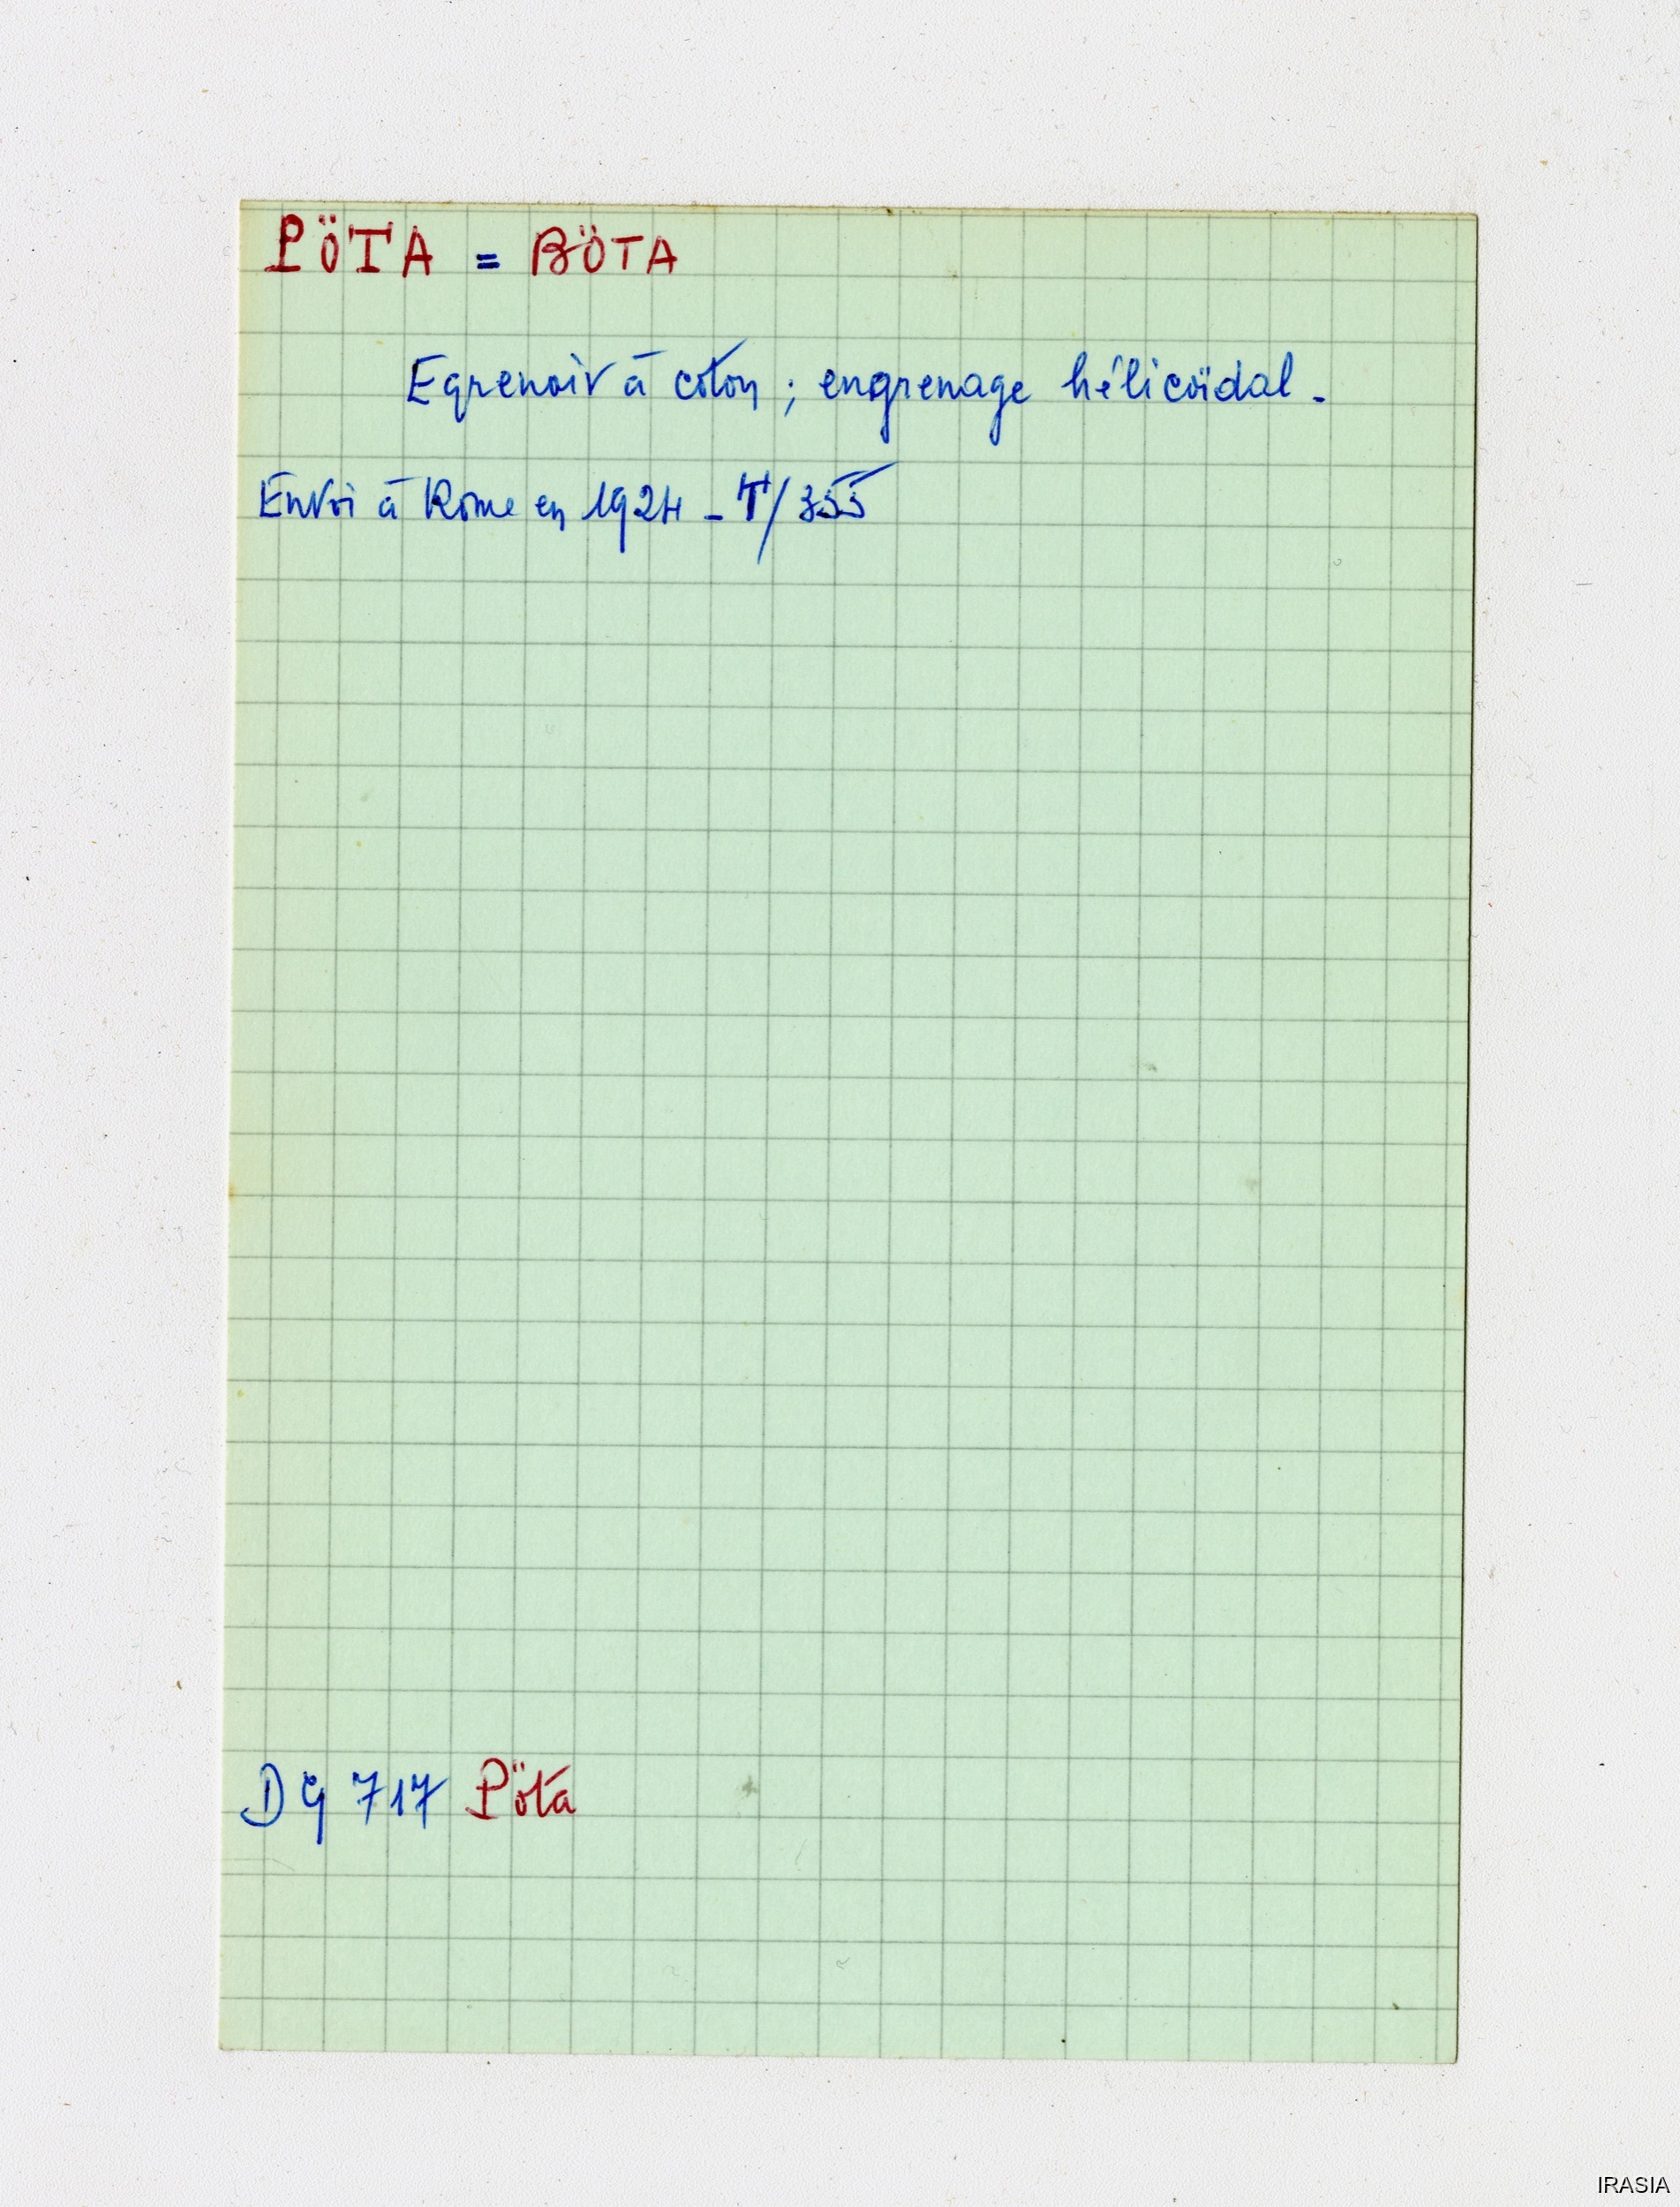 PÖTA = BÖTA
Egrenoir à coton ; engrenage hélicoïdal -
Envoi à Rome en 1924 - T/355
DG 717 Pöta
IRASIA